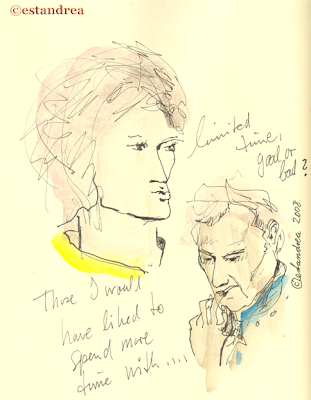 ©estandrea
limited
time,
good or
bad?
©estandrea 2008
Those I would
have liked to
spend more
time with....